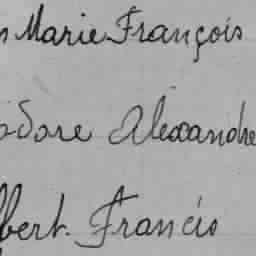 n Marie François
odore Alexandre
bert. Francis